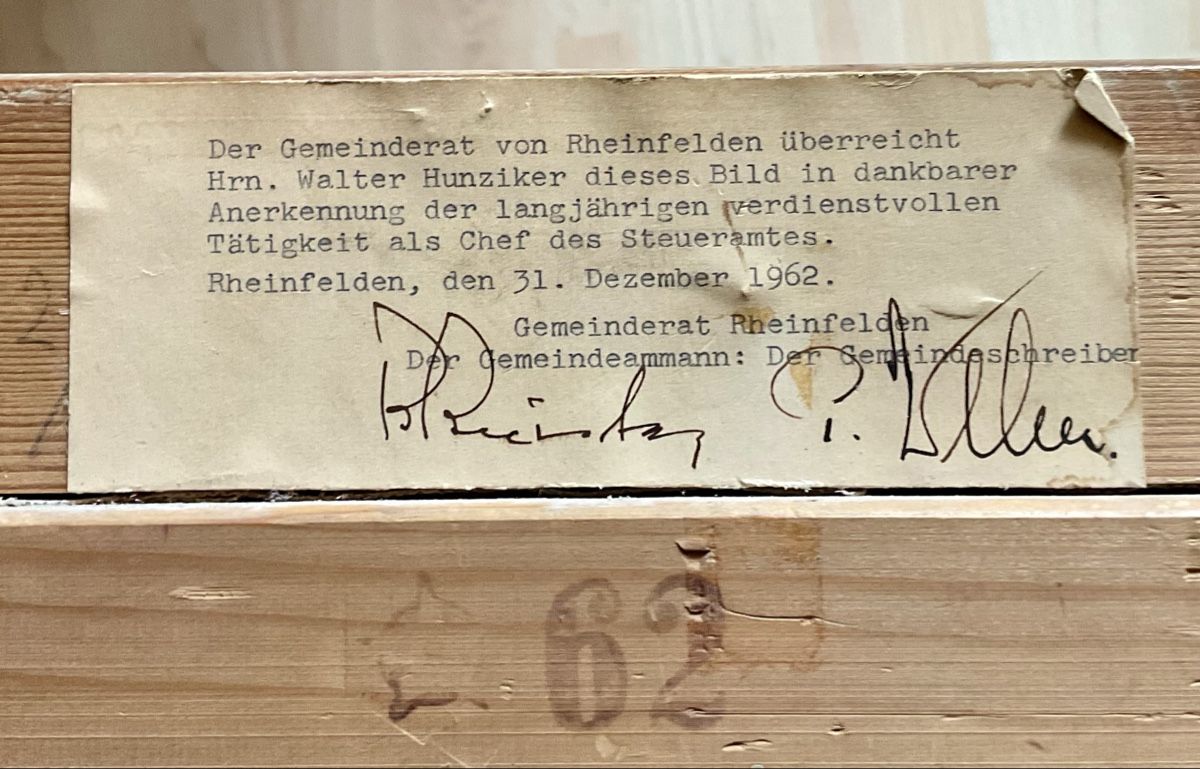 Der Gemeinderat von Rheinfelden überreicht
Hrn. Walter Hunziker dieses Bild in dankbarer
Anerkennung der langjährigen verdienstvollen
Tätigkeit als Chef des Steueramtes.
Rheinfelden, den 31. Dezember 1962.
Gemeinderat Rheinfelden
Der Gemeindeammann: Der Gemeindeschreiber
62